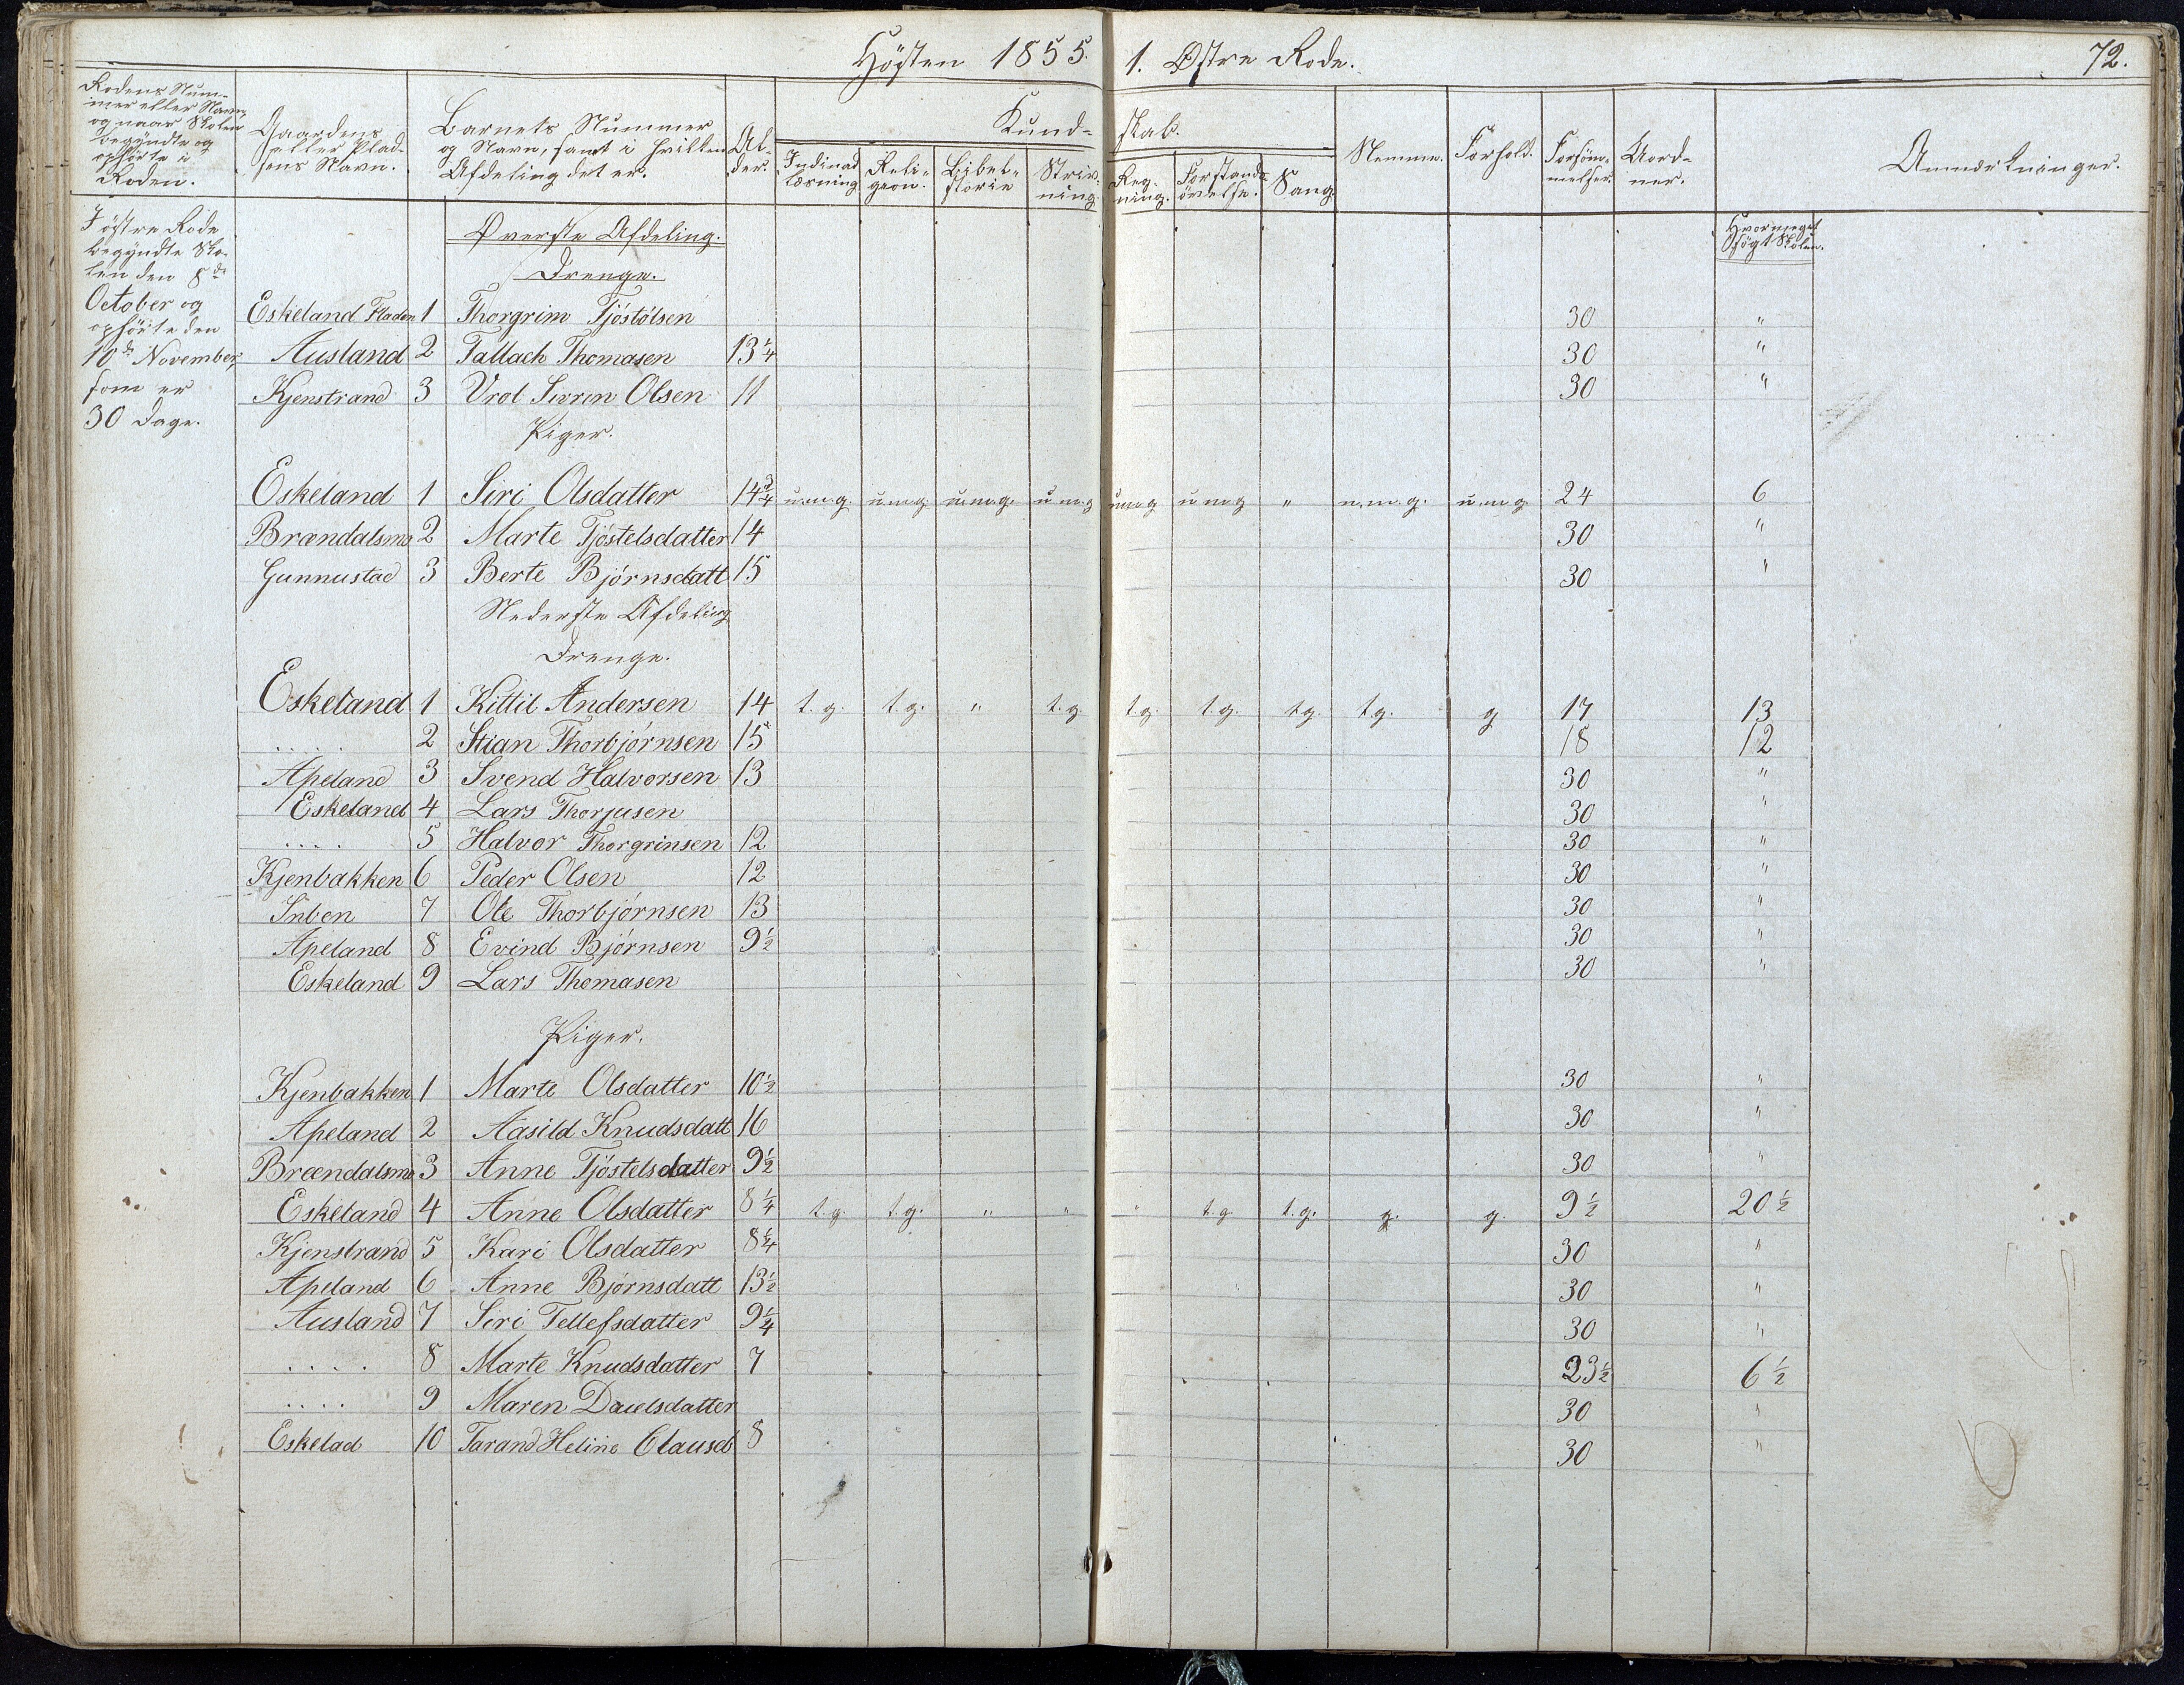 Høsten 1855. 1. Østre Rode. 72.
Rodens Num-
mer eller Navn,
og naar Skolen
begyndte og
ophørte i
Roden.
Gaardens
eller Plad-
sens Navn.
Barnets Nummer
og Navn, samt i hvilken
Afdeling det er.
Al-
der.
Kund- skab.
Indinad
læsning
Reli-
geon.
Bibel-
storie
Skriv-
ning.
Reg-
ning.
Forstands
øvelse.
Sang.
Nemme.
Forhold.
Forsøm-
melser.
Uord-
ner.
Anmærkninger.
Hvormeget
søgt Skolen.
I østre Rode
begyndte Sko-
len den 8de
October og
ophørte den
10de November,
som er
30 Dage.
Øverste Afdeling.
Drenge.
Eskeland Fladen 1 Thorgrim Tjöstölsen 30 "
Ausland 2 Tallach Thomasen 13 1/4 30 "
Kjenstrand 3 Vrol Sivrin Olsen 11 30 "
Piger.
Eskeland 1 Siri Olsdatter 14 3/4 u.m.g. u.m.g. u.m.g. u.m.g u.m.g u.m.g " u.m.g. u.m.g 24 6
Brændalsmo 2 Marte Tjöstelsdatter 14 30 "
Gunnustad 3 Berte Bjørnsdatt 15 30 "
Nederste Afdeling
Drenge.
Eskeland 1 Kittil Andersen 14 t.g. t.g. " t.g. t.g. t.g. t.g. t.g. g 17 13
.... 2 Stian Thorbjørnsen 15 18 12
Apeland 3 Svend Halvorsen 13 30 "
Eskeland 4 Lars Thorjusen 30 "
.... 5 Halvor Thorgrinsen 12 30 "
Kjenbakken 6 Peder Olsen 12 30 "
Inben 7 Ole Thorbjørnsen 13 30 "
Apeland 8 Evind Bjørnsen 9 1/2 30 "
Eskeland 9 Lars Thomasen 30 "
Piger.
Kjenbakken 1 Marte Olsdatter 10 1/2 30 "
Apeland 2 Aasild Knudsdatt 16 30 "
Brændalsmo 3 Anne Tjöstelsdatter 9 1/2 30 "
Eskeland 4 Anne Olsdatter 8 1/4 t.g. t.g. " " " t.g t.g. g. g. 9 1/2 20 1/2
Kjenstrand 5 Kari Olsdatter 8 1/4 30 "
Apeland 6 Anne Bjørnsdatt 13 1/2 30 "
Ausland 7 Siri Tellefsdatter 9 1/4 30 "
.... 8 Marte Knudsdatter 7 23 1/2 6 1/2
.... 9 Maren Dauelsdatter 30 "
Eskelad 10 Tarand Heline Clausd 8 30 "